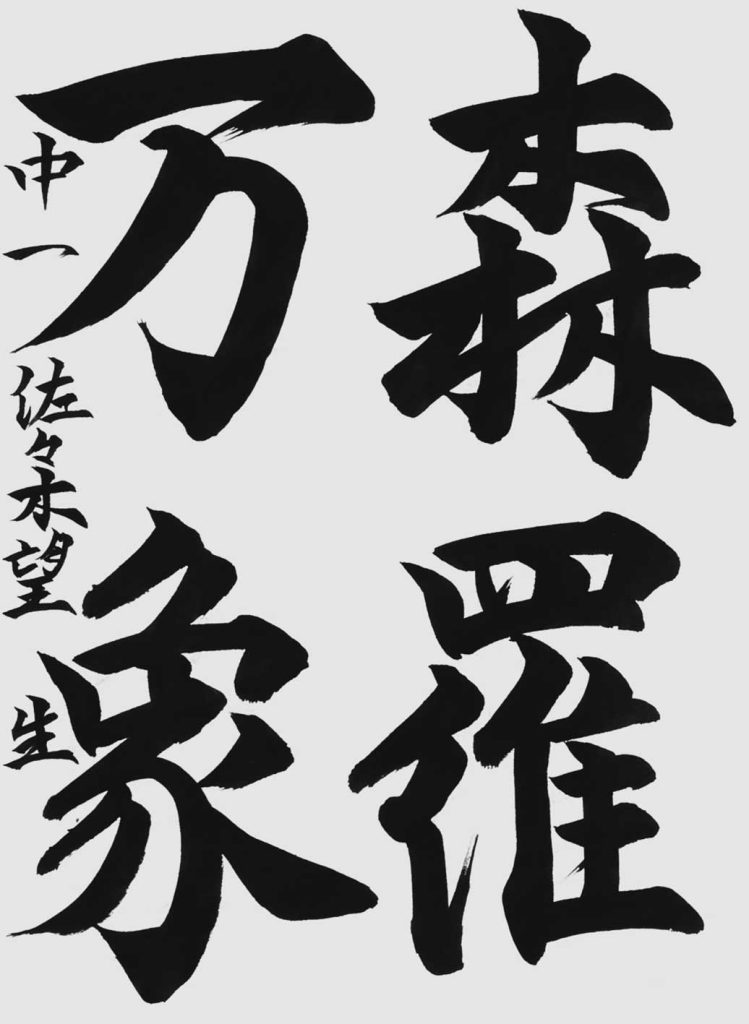 森羅
万象
中一 佐々木望生